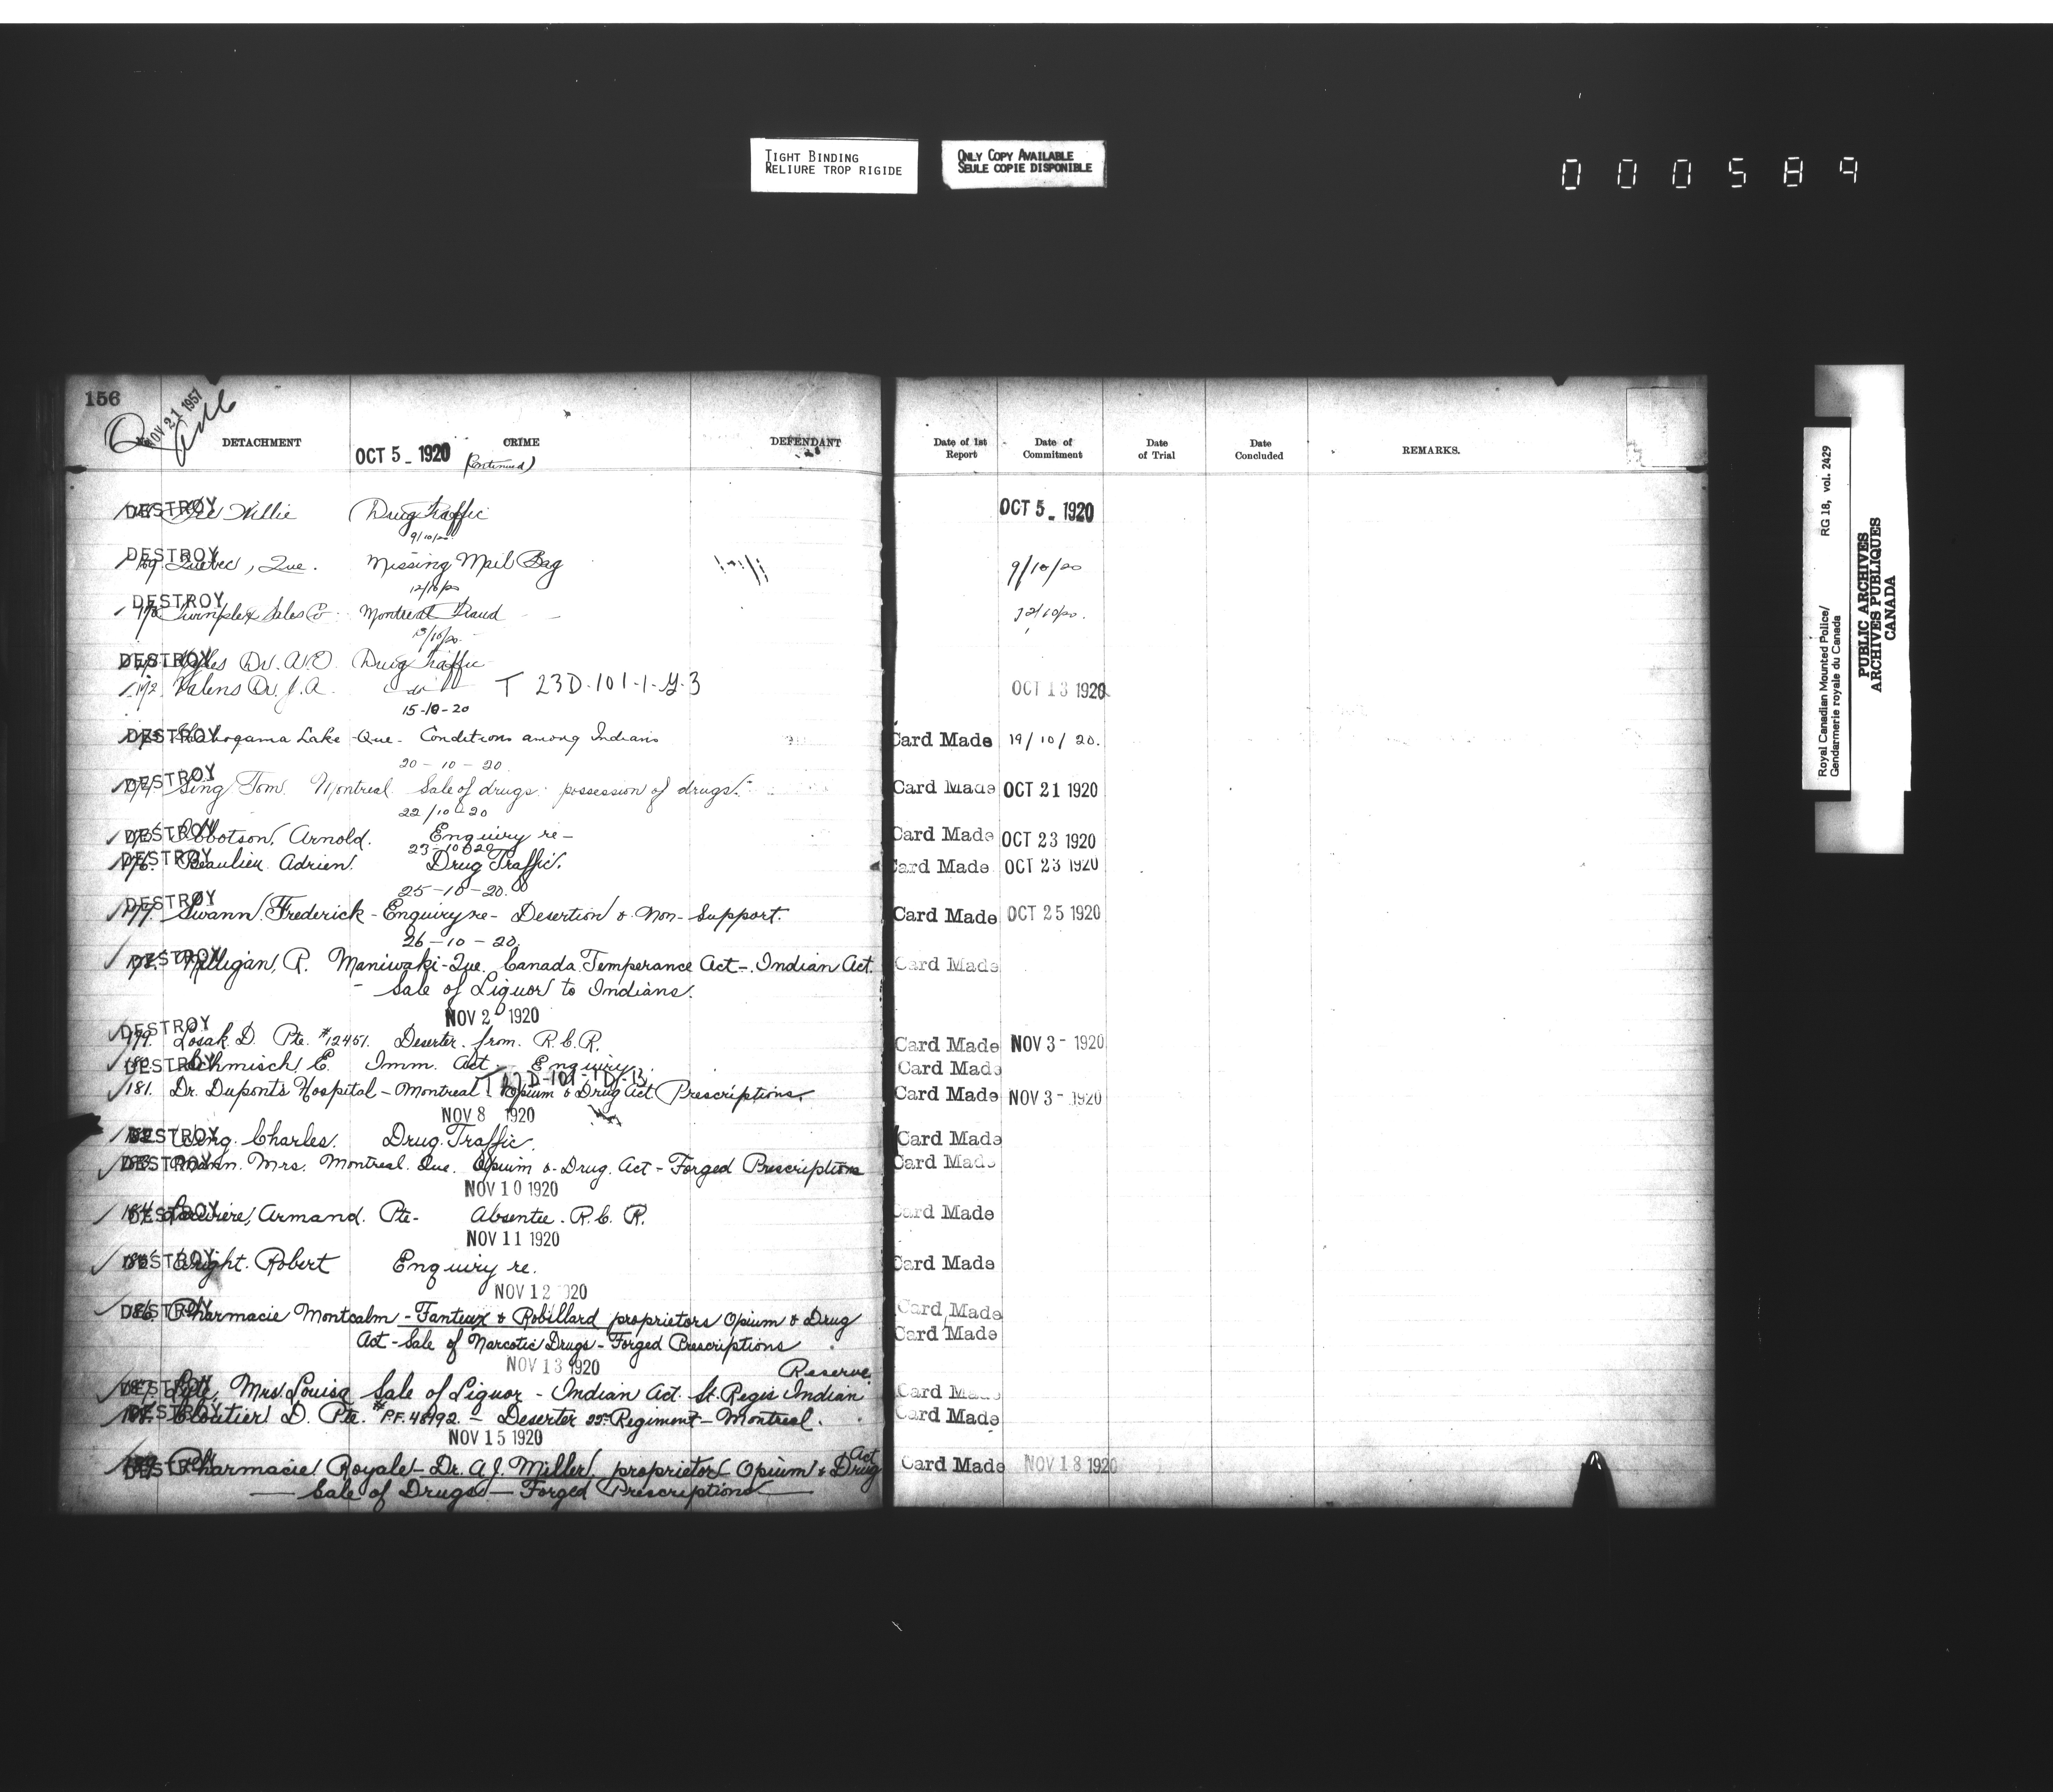 TIGHT BINDING
RELIURE TROP RIGIDE
ONLY COPY AVAILABLE
SEULE COPIE DISPONIBLE
000589
156
NOV 21 1957
No. DETACHMENT CRIME DEFENDANT Date of 1st Report Date of Commitment Date of Trial Date Concluded REMARKS.
OCT 5 - 1920 (Continued)
DESTROY Willie Drug Traffic OCT 5 - 1920
9/10/20
DESTROY 169 Quebec, Que. Missing Mail Bag 9/10/20
12/10/20
DESTROY 170 Sales Co Montreal Fraud 12/10/20.
13/10/20
DESTROY Dr. A.O. Drug Traffic
172. Valens Dr. J. A. do T 23D-101-1-Y-3 OCT 13 1920
15-10-20
DESTROY Lake - Que - Conditions among Indians Card Made 19/10/20.
20-10-20
DESTROY Sing Tom. Montreal Sale of drugs: possession of drugs. Card Made OCT 21 1920
22/10-20
DESTROY Ibbotson, Arnold. Enquiry re- Card Made OCT 23 1920
23-10-20
DESTROY 176. Beaulieu Adrien. Drug Traffic. Card Made OCT 23 1920
25-10-20.
DESTROY 177. Swann. Frederick - Enquiry re - Desertion & Non-Support. Card Made OCT 25 1920
26-10-20.
DESTROY 178. Milligan, R. Maniwaki-Que. Canada Temperance Act - Indian Act. Card Made
- Sale of Liquor to Indians.
NOV 2 1920
DESTROY 179. Losak D. Pte. #12451. Deserter from R.C.R. Card Made NOV 3 - 1920
DESTROY 180. Schmisch E. Imm. Act Enquiry. Card Made
181. Dr. Duponts Hospital - Montreal. Opium & Drug Act Prescriptions. Card Made NOV 3 - 1920
NOV 8 1920
DESTROY 182. Charles. Drug Traffic. Card Made
DESTROY 183. Mann. Mrs. Montreal. Que. Opium & Drug. Act - Forged Prescriptions Card Made
NOV 10 1920
DESTROY 184. Armand. Pte- Absentee - R.C.R. Card Made
NOV 11 1920
DESTROY 185. Wright. Robert Enquiry re. Card Made
NOV 12 1920
DESTROY 186. Pharmacie Montcalm - Fanteux & Robillard proprietors Opium & Drug Card Made
Act - Sale of Narcotic Drugs - Forged Prescriptions Card Made
NOV 13 1920 Reserve.
DESTROY 187. Lyte, Mrs. Louisa Sale of Liquor - Indian Act. St. Regis Indian Card Made
DESTROY 188. Cloutier D. Pte. # P.F. 48192. - Deserter 22nd Regiment - Montreal. Card Made
NOV 15 1920
DESTROY 189. Pharmacie Royale - Dr. A J. Miller. proprietor Opium & Drug Act Card Made NOV 18 1920
Sale of Drugs - Forged Prescriptions
Royal Canadian Mounted Police/ RG 18, vol. 2429
Gendarmerie royale du Canada
PUBLIC ARCHIVES
ARCHIVES PUBLIQUES
CANADA